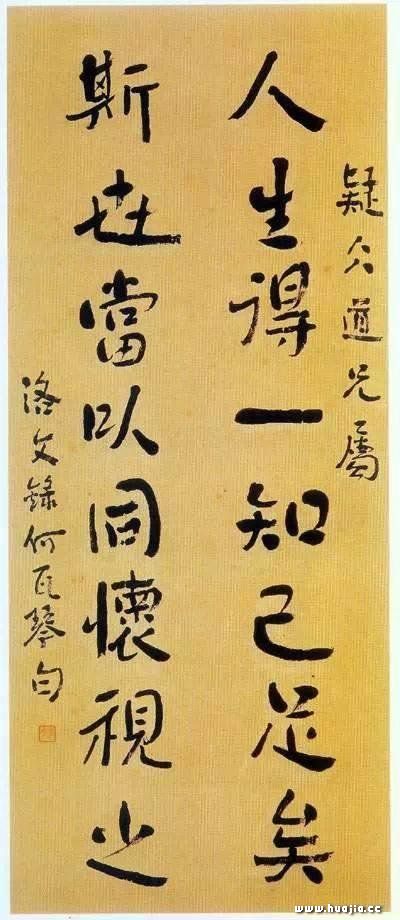 疑仌道兄屬
人生得一知己足矣
斯世當以同懷視之
洛文錄何瓦琴句
www.huajia.cc